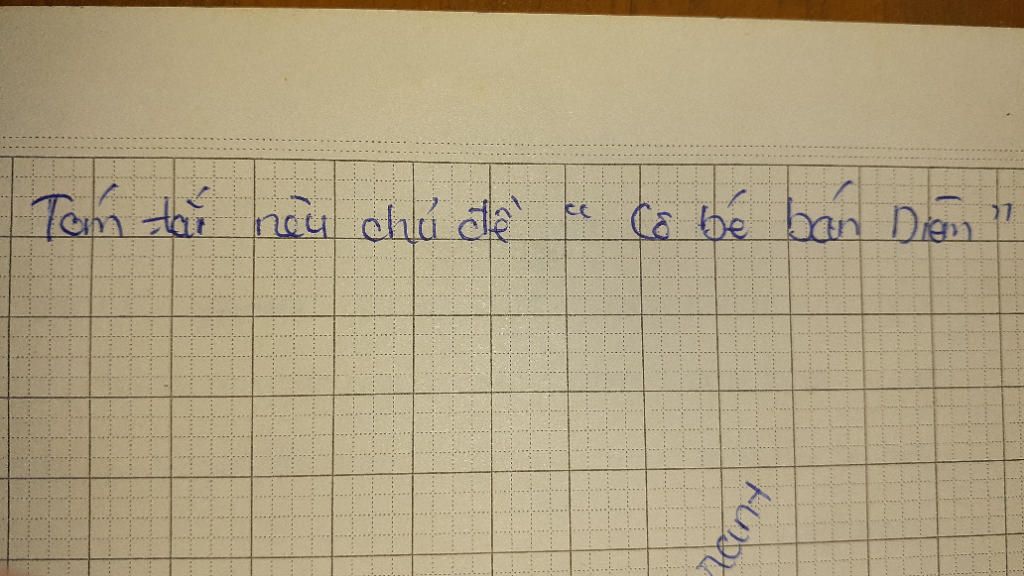 Tóm tắt nêu chủ đề “ Cô bé bán Diêm ”